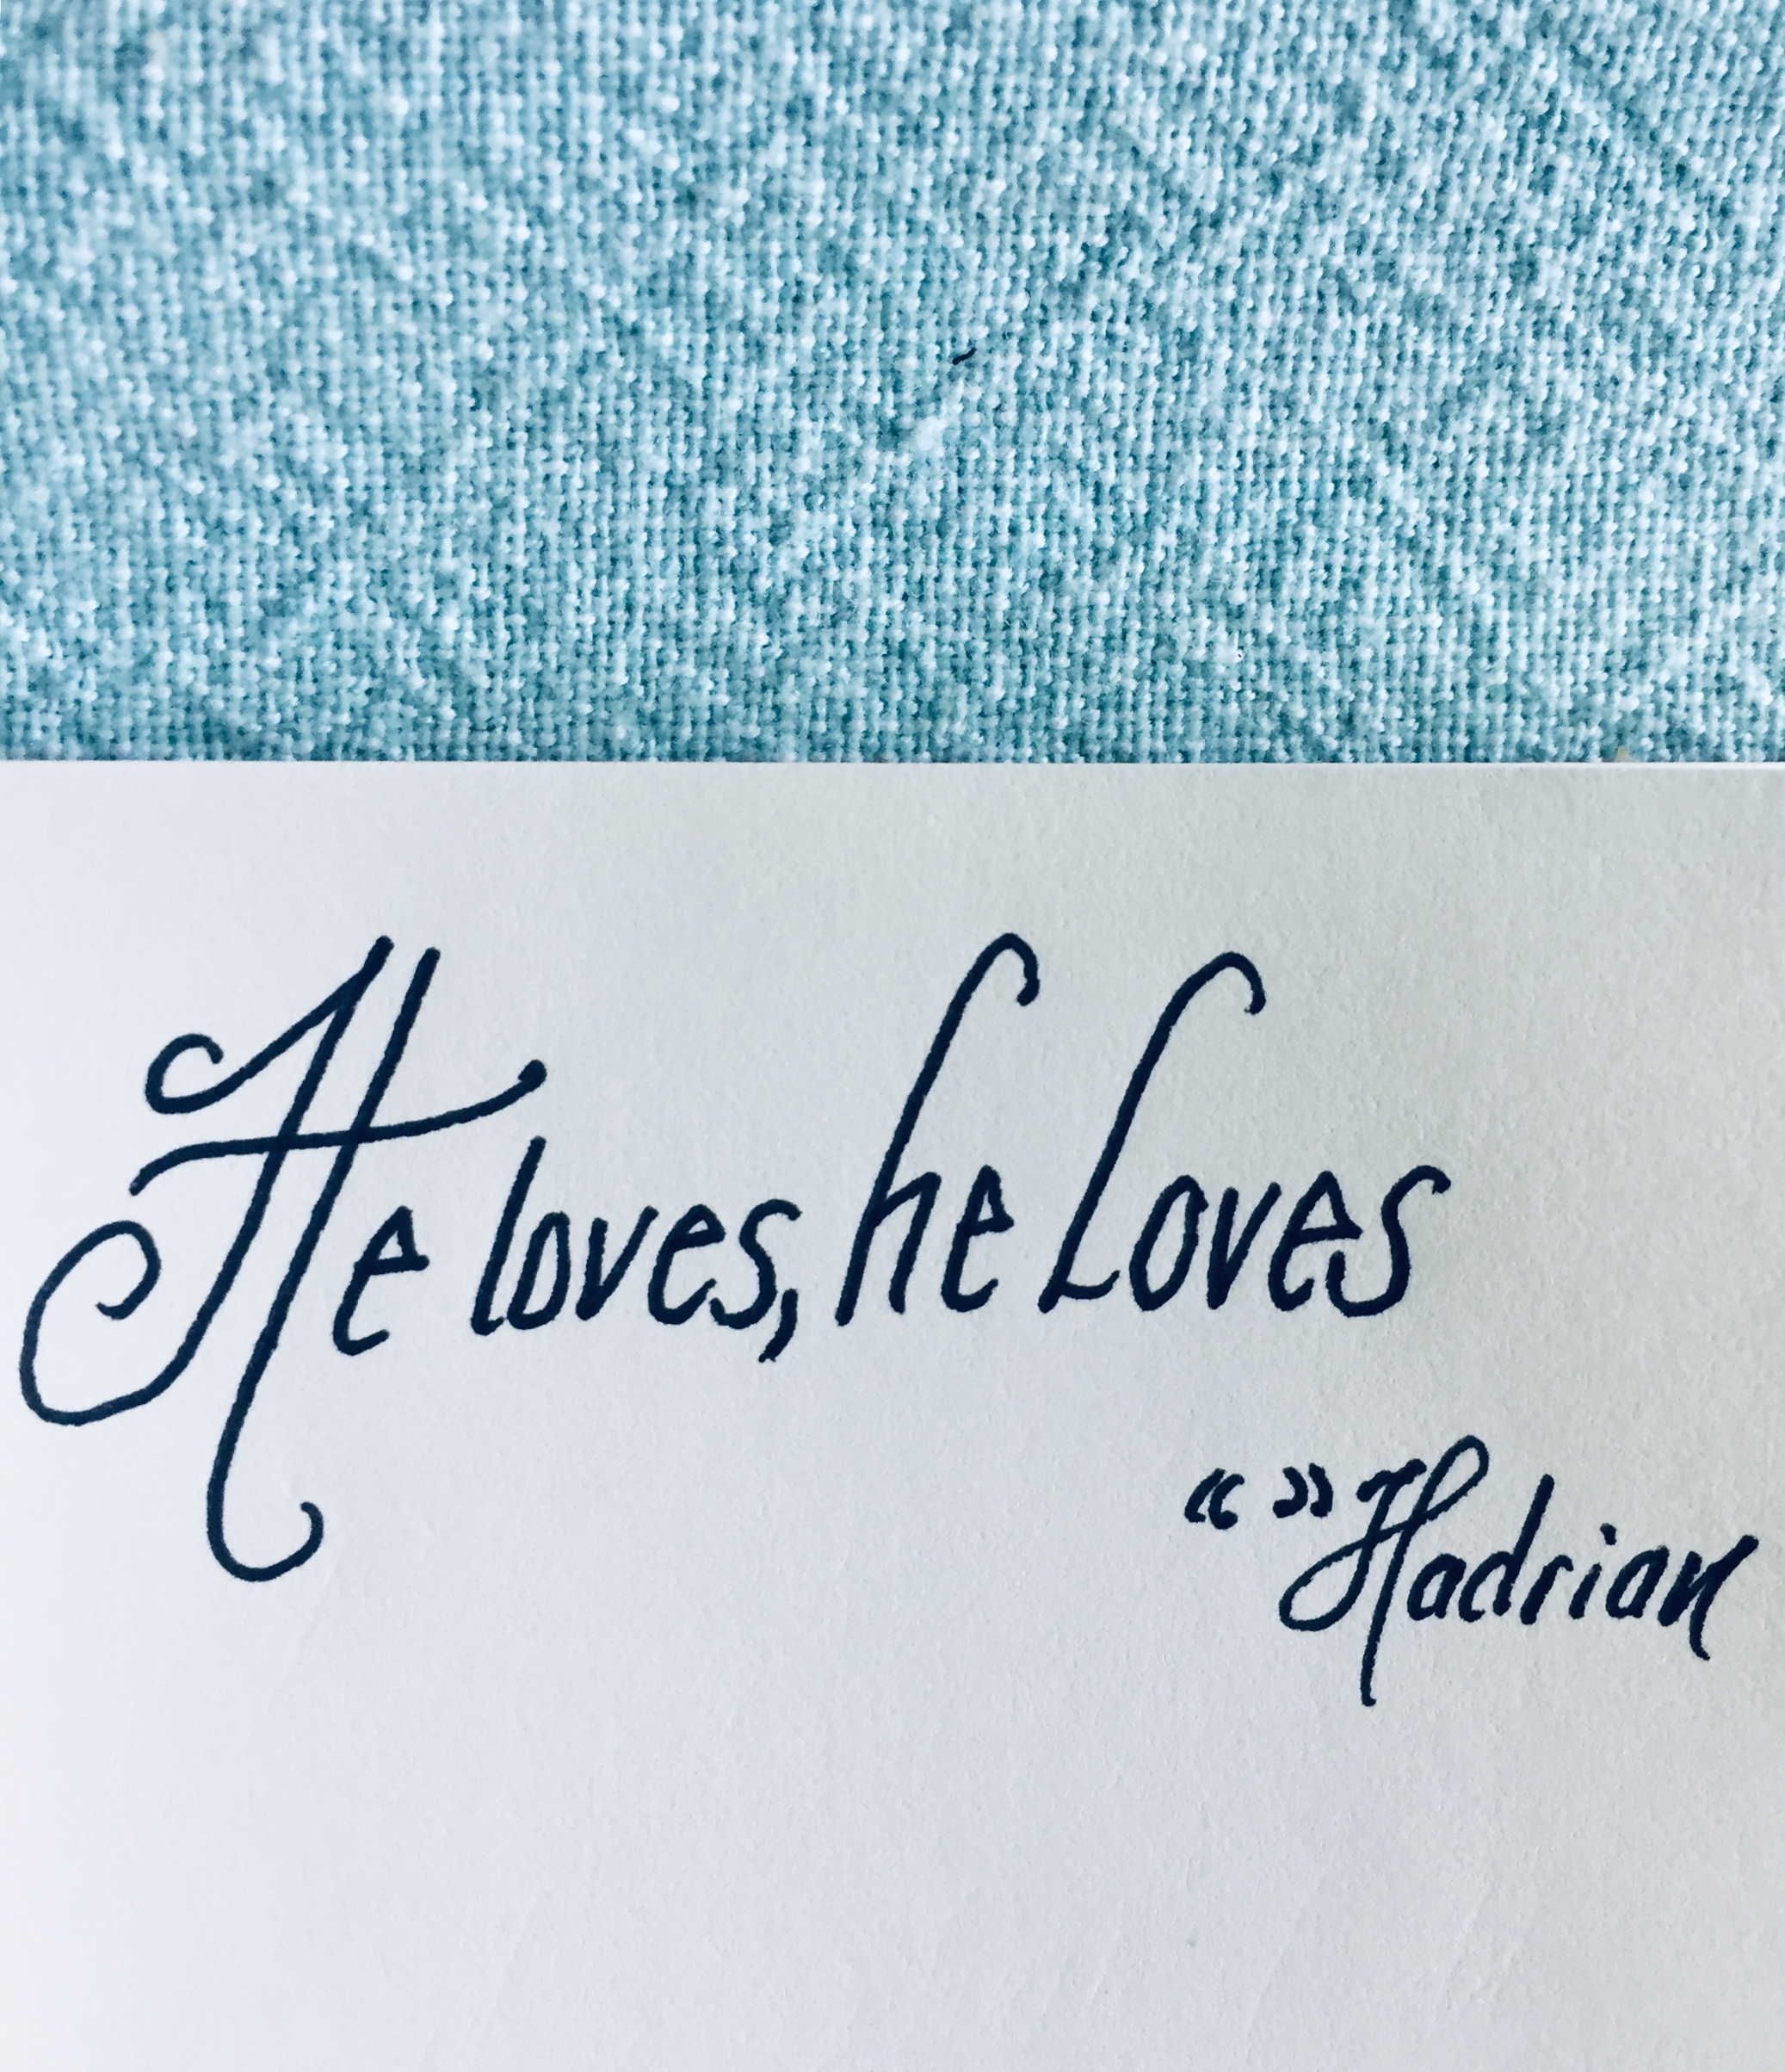 He loves, he loves
“ ” Hadrian